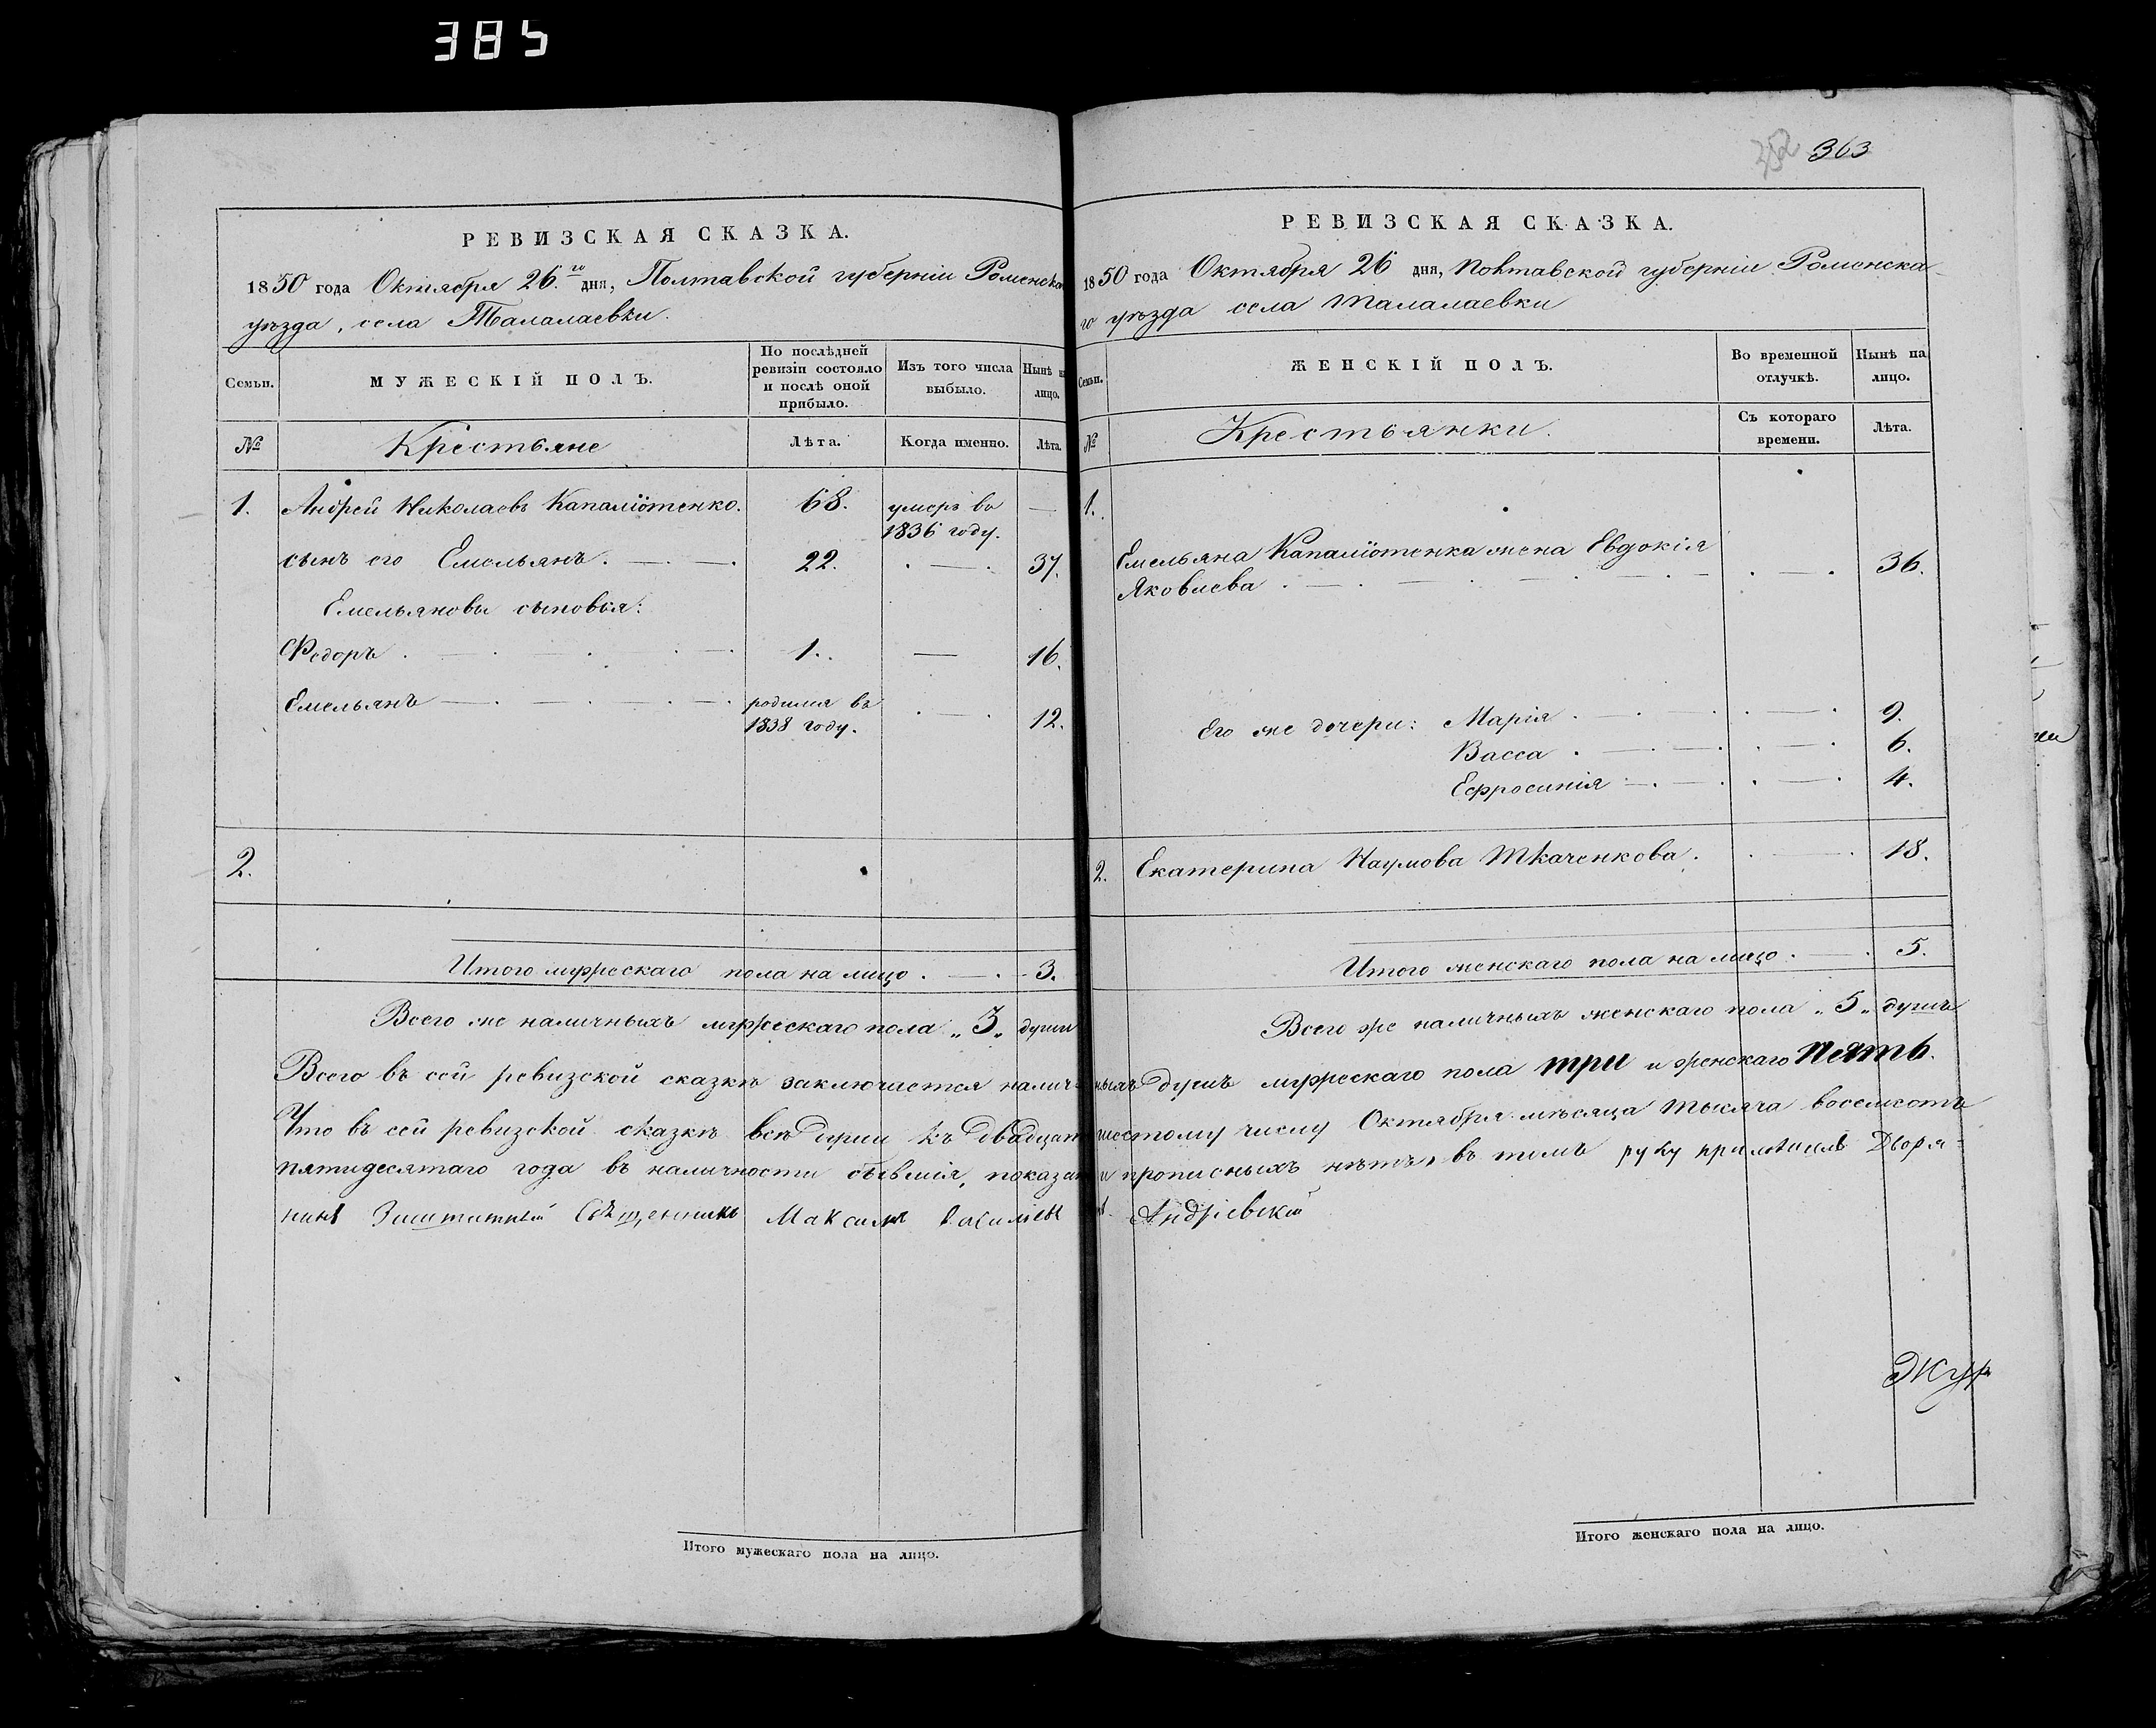 385
РЕВИЗСКАЯ СКАЗКА.
1850 года Октября 26.го дня, Полтавской губерніи Роменска
уѣзда, села Талалаевки.
Семьи.
МУЖЕСКІЙ ПОЛЪ.
По послѣдней
ревизіи состояло
и послѣ оной
прибыло.
Изъ того числа
выбыло.
Нынѣ на
лицо.
№
Крестьяне
Лѣта.
Когда именно.
Лѣта.
1. Андрей Николаевъ Капаліотенко. 68. умеръ въ —
1836 году.
сынъ его Емельянъ. — . 22. . — . 37.
Емельяновы сыновья:
Федоръ . — . — . . — . 1. — 16.
Емельянъ — . — . — . родился въ . — . 12.
1838 году.
2.
Итого мужескаго пола на лицо . — . 3.
Всего же наличныхъ мужескаго пола „3„ души
Всего въ сей ревизской сказкѣ заключается налич-
Что въ сей ревизской сказкѣ всѣ души къ двадцать
пятидесятаго года въ наличности бывшія, показан
нинъ Заштатный Священникъ Максимъ Васильев
Итого мужескаго пола на лицо.
352 363
РЕВИЗСКАЯ СКАЗКА.
1850 года Октября 26 дня, Полтавской губерніи Роменска-
го уѣзда села Талалаевки
Семьи.
ЖЕНСКІЙ ПОЛЪ.
Во временной
отлучкѣ.
Нынѣ на
лицо.
№
Крестьянки.
Съ котораго
времени.
Лѣта.
1.
Емельяна Капаліотенка жена Евдокія
Яковлева . — . — . — . — . — . 36.
Его же дочери: Марія . — . — . — . 9.
Васса . — . — . — . 6.
Ефросинія — . — . . — . 4.
2. Екатерина Наумова Ткаченкова. . — . 18.
Итого женскаго пола на лицо . — . 5.
Всего же наличныхъ женскаго пола „5„ душъ
ныхъ душъ мужескаго пола три и женскаго пять.
шестому числу Октября мѣсяца тысяча восемсотъ
и прописныхъ нѣтъ, въ томъ руку приложилъ Дворя=
Андріевскій
Жур
Итого женскаго пола на лицо.